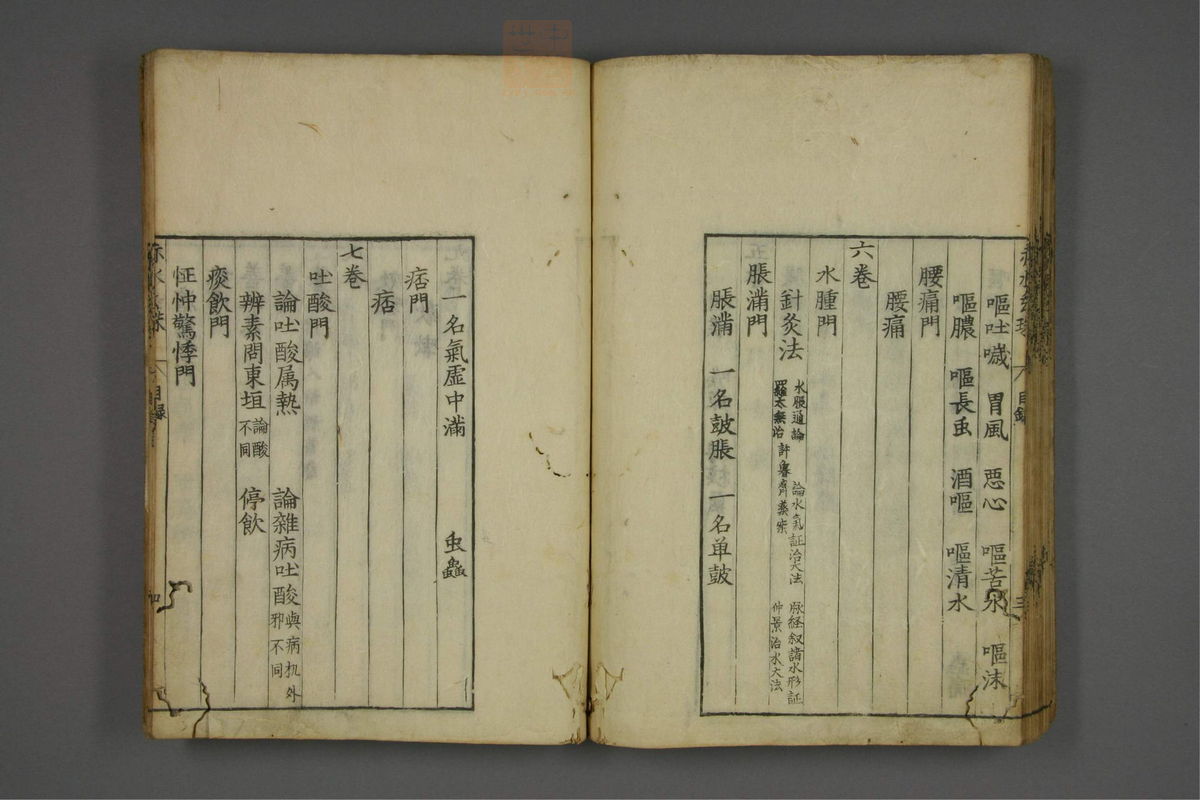 嘔吐噦　胃風　惡心　嘔苦水　嘔沫
嘔膿　嘔長虫　酒嘔　嘔清水
腰痛門
腰痛
六卷
水腫門
針灸法　水脹通論　論水氣証治大法　脉経叙諸水形証
羅太無治　許魯齋藁　仲景治水大法
脹滿門
脹滿　一名鼓脹　一名单鼓
一名氣虛中滿　虫蠱
痞門
痞
七卷
吐酸門
論吐酸属熱　論雜病吐酸與病机外邪不同
辨素問東垣論酸不同　停飲
痰飲門
怔忡驚悸門
赤水玄珠　目録　三
赤水玄珠　目録